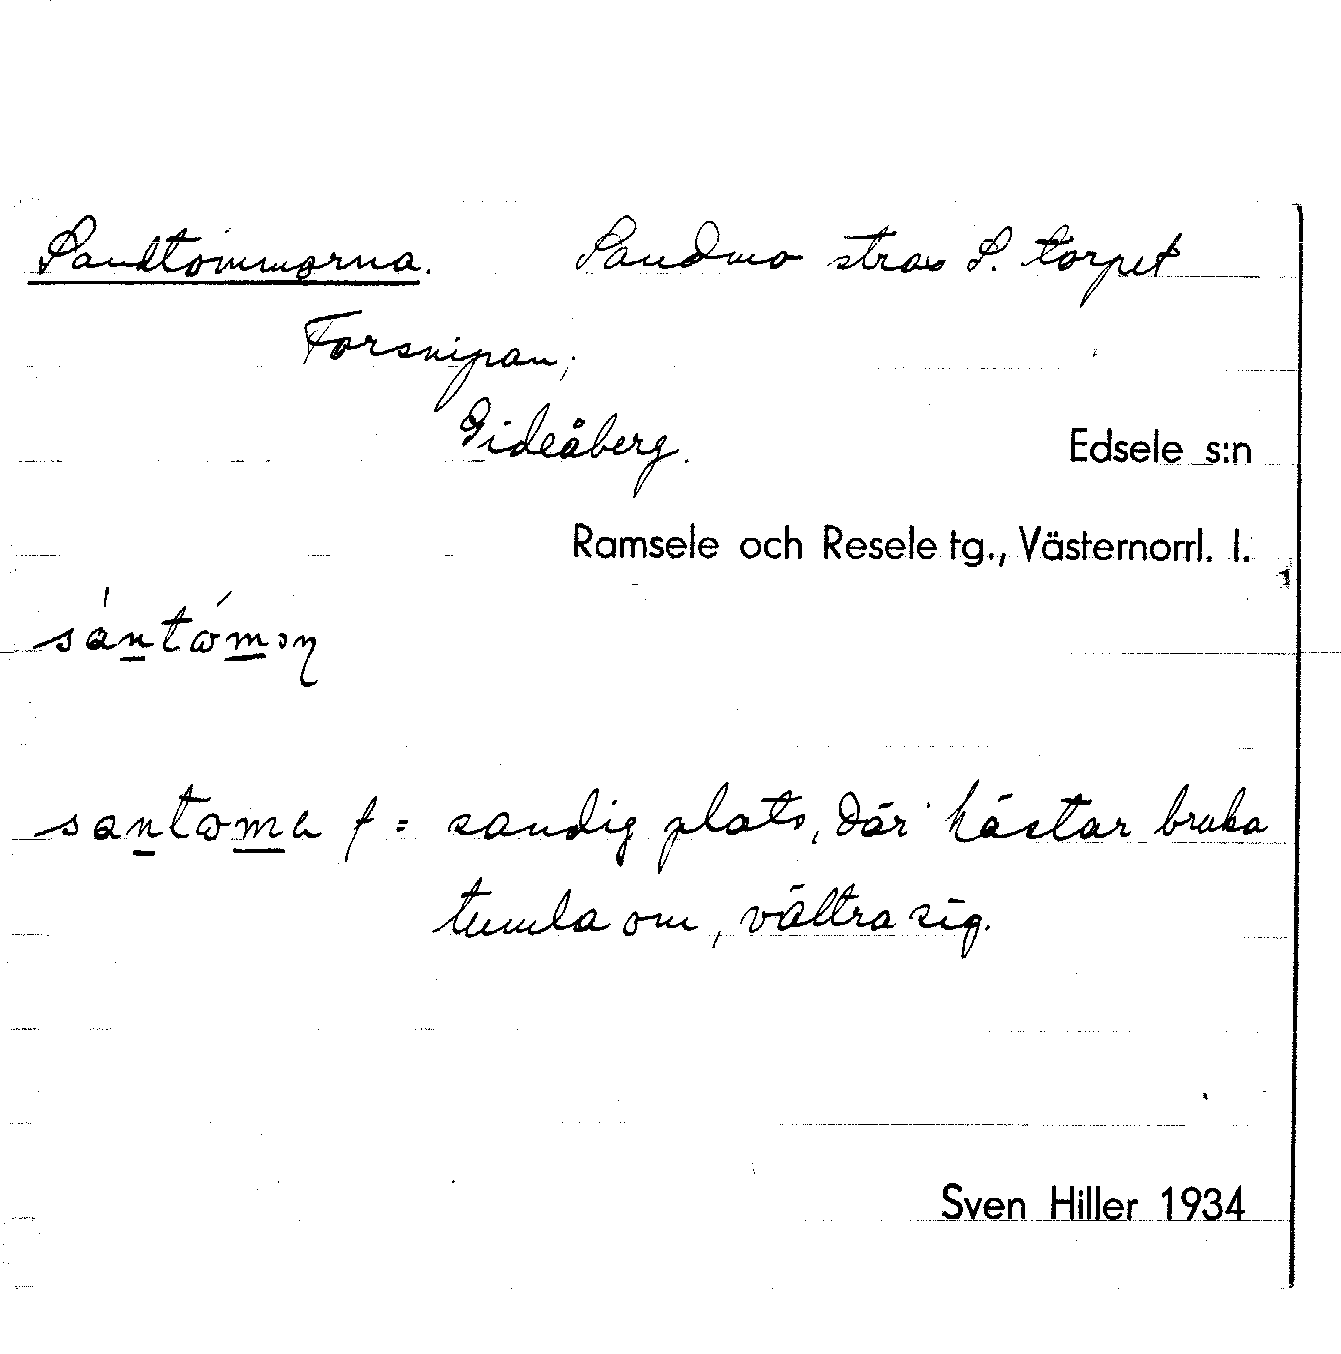 Sandtommorna. Sandmo strax S. torpet
Forsnipan;
Gideåberg.
Edsele s:n
Ramsele och Resele tg., Västernorrl. l.
santoma f = sandig plats, där hästar bruka
tumla om, vältra sig.
Sven Hiller 1934